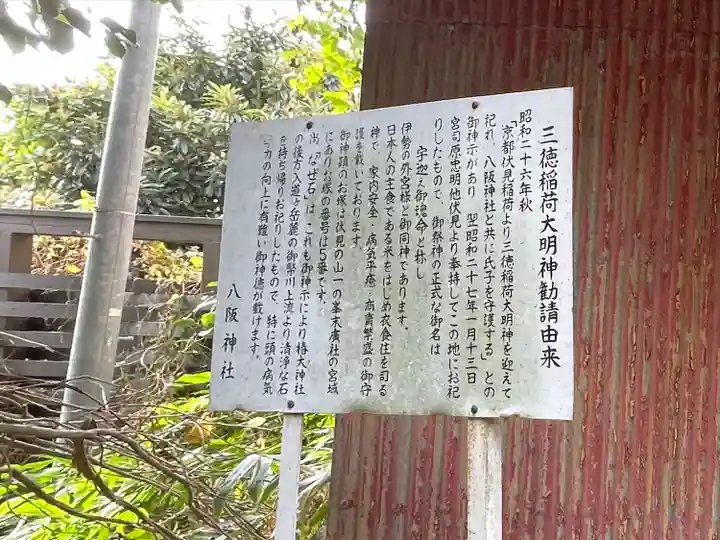 三徳稲荷大明神勧請由来
昭和二十六年秋
「京都伏見稲荷より三徳稲荷大明神を迎えて
祀れ、八阪神社と共に氏子を守護する」との
御神示があり 翌昭和二十七年一月十三日
宮司原忠明他伏見より奉持してこの地にお祀
りしたもので、御祭神の正式な御名は
宇迦之御魂命と称し
伊勢の外宮様と御同神であります。
日本人の主食である米をはじめ衣食住を司る
神で、家内安全・病気平癒・商売繁盛の御守
護を戴いております。
御神蹟のお塚は伏見の山一の峯末廣社の宮域
にありお塚の番号は5番です。
尚、「なぜ石」は、これも御神示により椿大神社
の後方入道ヶ岳麓の御幣川上流より清浄な石
を持ち帰りお祀りしたもので、特に頭の病気
力の向上に有難い御神徳が載けます。
八阪神社